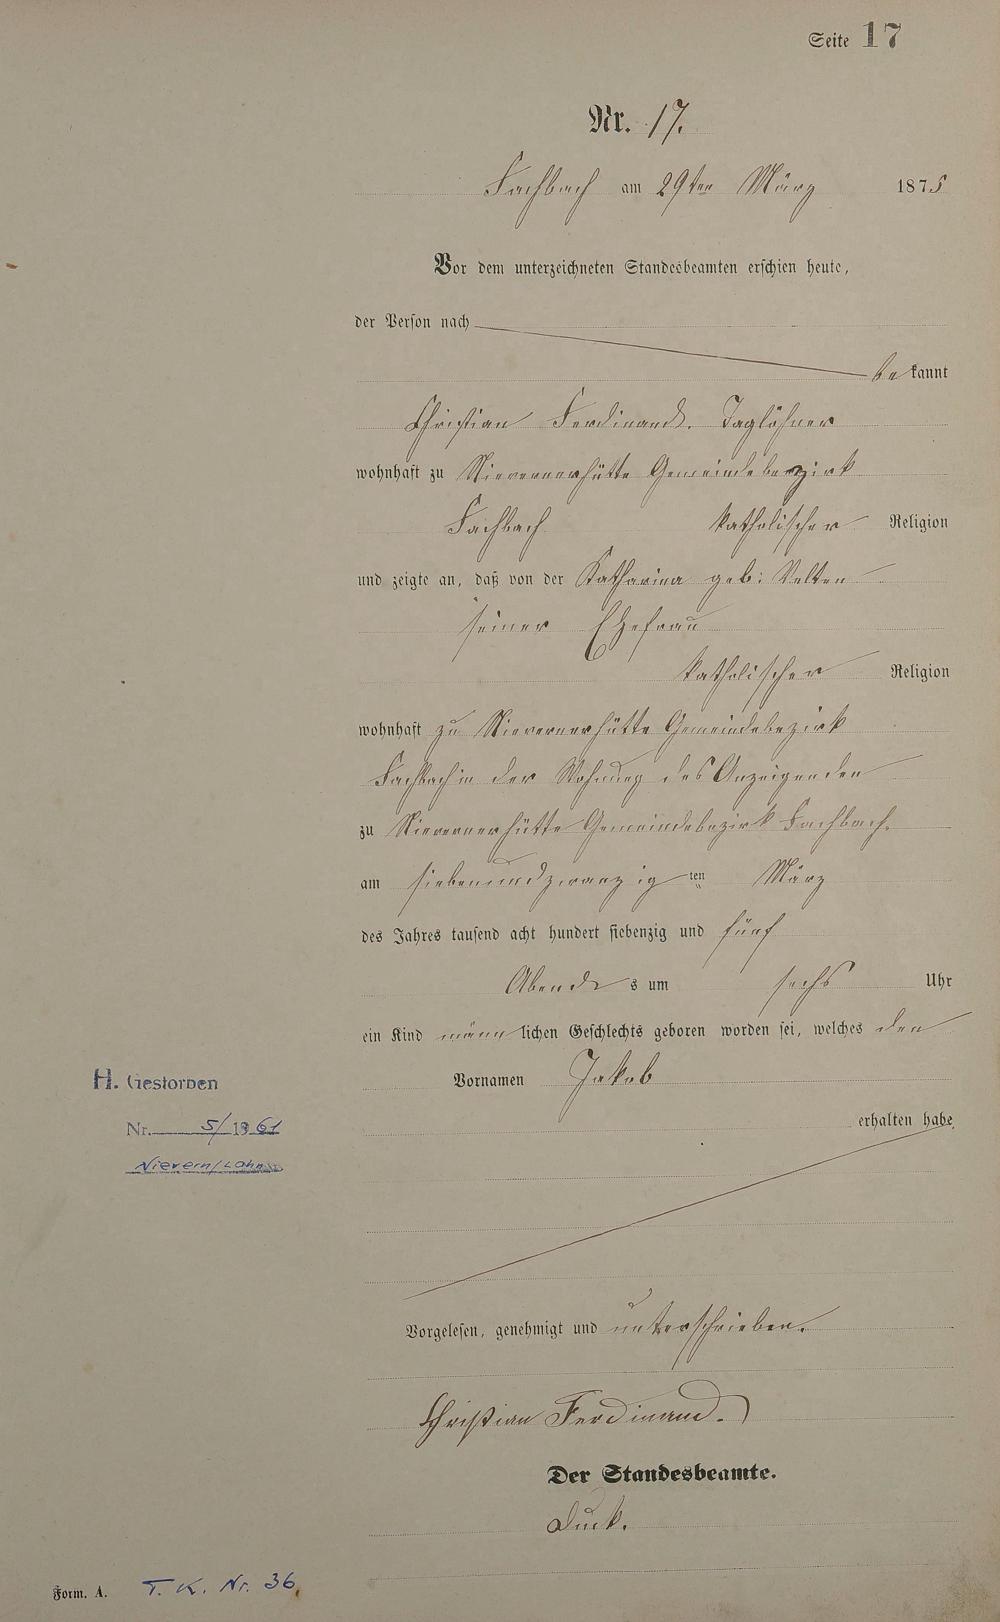 Seite 17
Nr. 17.
Fachbach am 29ten März 1875
Vor dem unterzeichneten Standesbeamten erschien heute,
der Person nach
bekannt
Christian Ferdinand. Taglöhner
wohnhaft zu Nievernerhütte Gemeindebezirk
Fachbach katholischer Religion
und zeigte an, daß von der Katharina geb: Velten
seiner Ehefrau
katholischer Religion
wohnhaft zu Nievernerhütte Gemeindebezirk
Fachbach in der Wohnung des Anzeigenden
zu Nievernerhütte Gemeindebezirk Fachbach.
am siebenundzwanzig ten März
des Jahres tausend acht hundert siebenzig und fünf
Abends um sechs Uhr
ein Kind männlichen Geschlechts geboren worden sei, welches den
Vornamen Jakob
erhalten habe
H. Gestorben
Nr. 5/1961
Nievern/Lahn
Vorgelesen, genehmigt und unterschrieben.
Christian Ferdinand.
Der Standesbeamte.
Duck.
Form. A. T. K. Nr. 36.